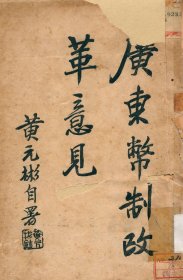 廣東幣制改
革意見
黃元彬自署